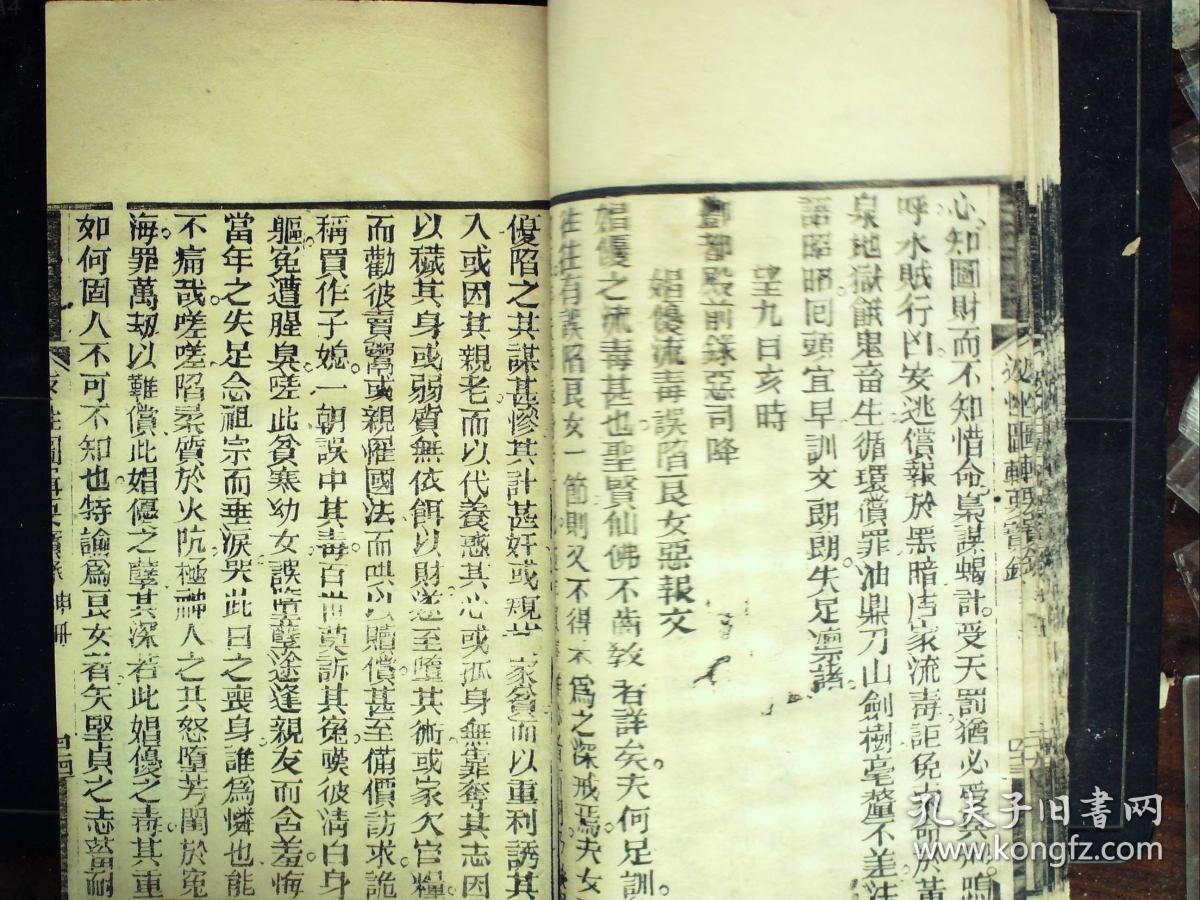 心知圖財而不知惜命梟謀蝎計受天罰猶必受
呼水賊行凶安逃償報於黑暗居家流毒詎免
泉地獄餓鬼畜生循環償罪油鼎刀山劍樹毫釐不差
語昭昭回頭宜早訓文朗朗失足凛諸
望九日亥時
酆都殿前錄惡司降
娼優流毒誤陷良女惡報文
娼優之流毒甚也聖賢仙佛不齒教有詳矣夫何足訓
往往有誤陷良女一節則又不得不為之深戒焉夫女
優陷之其謀甚慘其計甚奸或窺其家貧而以重利誘其
人或因其親老而以代養惑其心或孤身無靠奪其志因
以穢其身或弱質無依餌以財遂至墮其術或家欠官糧
而勸彼賣鬻或親罹國法而哄以贖償甚至備價訪求詭
稱買作子媳一朝誤中其毒百世莫訴其冤嘆彼清白身
軀冤遭腥臭嗟此貧寒幼女誤墮孽途逢親友而含羞悔
當年之失足念祖宗而垂淚哭此日之喪身誰為憐也能
不痛哉嗟嗟陷柔質於火阬極神人之共怒墮芳閨於冤
海罪萬劫以難償此娼優之孽甚深若此娼優之毒其重
如何固人不可不知也特諭為良女者矢堅貞之志
孔夫子旧書网
www.kongfz.com